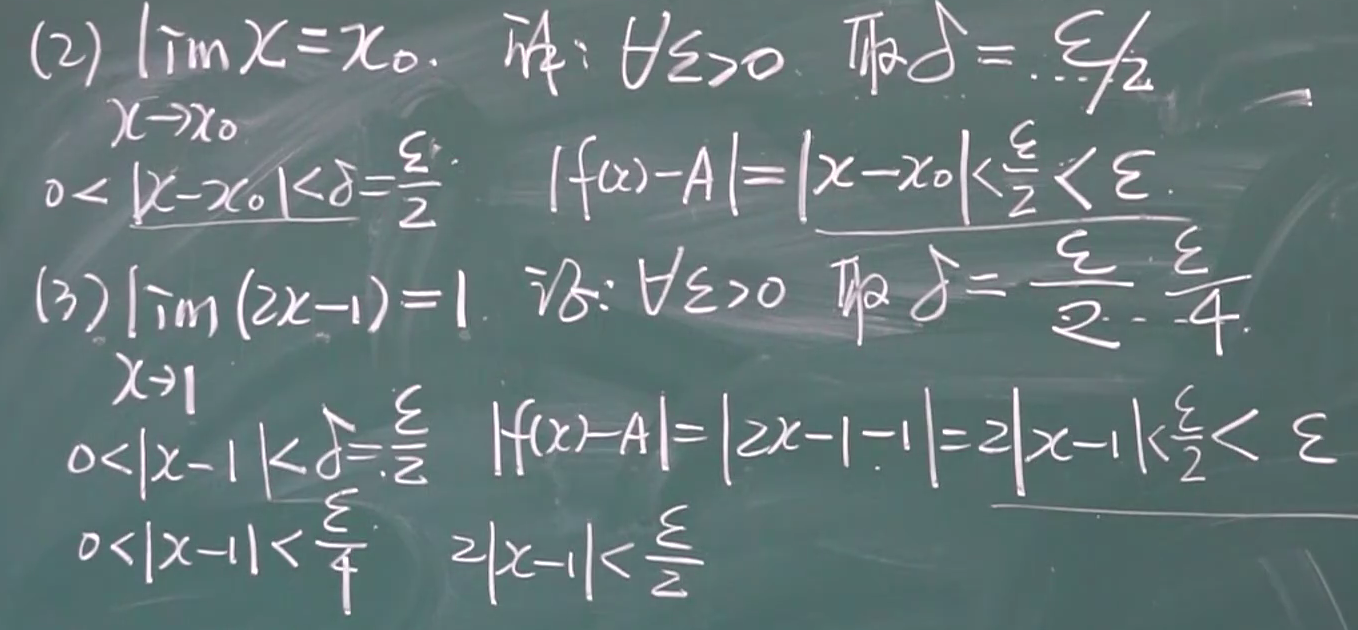 (2) lim x = x₀. 证: ∀ε>0 取δ = ε/2
x→x₀
0 < |x-x₀| < δ = ε/2 |f(x)-A| = |x-x₀| < ε/2 < ε.
(3) lim (2x-1) = 1. 证: ∀ε>0 取 δ = ε/2 ε/4
x→1
0 < |x-1| < δ = ε/2 |f(x)-A| = |2x-1-1| = 2|x-1| < ε/2 < ε
0 < |x-1| < ε/4 2|x-1| < ε/2